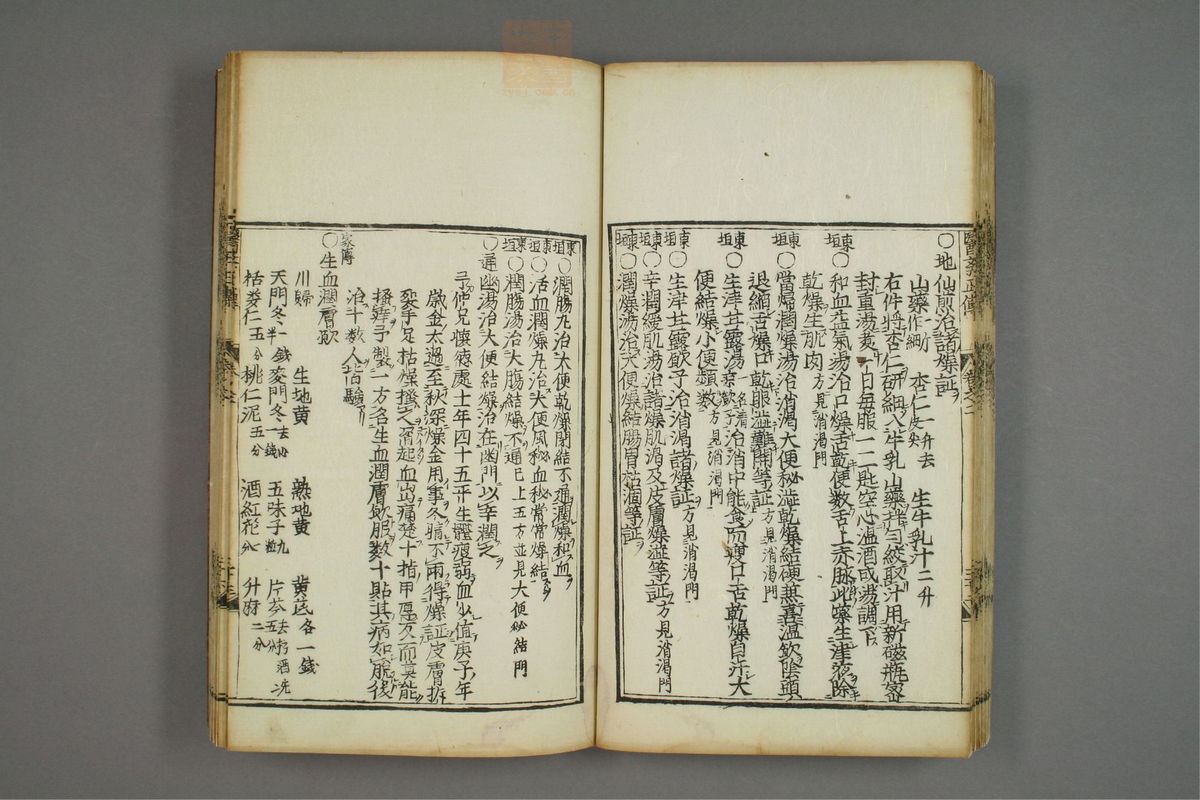 ○地仙煎治諸燥証
山藥作細 杏仁一升去皮尖 生牛乳汁二升
右件將杏仁研細入牛乳山藥拌匀絞取汁用新磁瓶密
封重湯煮一日毎服一二匙空心温酒或湯調下
東垣○和血益氣湯治口燥舌乾便数舌上赤脉此藥生津液除
乾燥生肌肉方見消渇門
東垣○當歸潤燥湯治消渇大便秘澁乾燥結硬兼喜温飲陰頭
退縮舌燥口乾眼澁難開等証方見消渇門
東垣○生津甘露湯一名清凉飲子治消中能食而瘦口舌乾燥自汗大
便結燥小便頻数方見消渇門
東垣○生津甘露飲子治消渇諸燥証方見消渇門
東垣○辛潤緩肌湯治諸燥肌渇及皮膚燥澁等証方見消渇門
東垣○潤燥湯治大便燥結腸胃枯涸等証
東垣○潤腸丸治大便乾燥閉結不通潤燥和血
東垣○活血潤燥丸治大便風秘血秘常常燥結
東垣○潤腸湯治大腸結燥不通已上五方並見大便秘結門
○通幽湯治大便結燥治在幽門以辛潤之
予仲兄懷德處士年四十五平生體瘦弱血少值庚子年
歲金太過至秋深燥金用事冬晴不雨得燥証皮膚拆
裂手足枯燥搔之屑起血出痛楚十指甲厚反而莫能
搔痒予製一方名生血潤膚飲服数十貼其病如脫後
治十数人皆驗
家傳○生血潤膚飲
川歸 生地黄 熟地黄 黄芪各一錢
天門冬一錢半 麥門冬去心一錢 五味子九粒 片芩去朽酒洗五分
栝蔞仁五分 桃仁泥五分 酒紅花一分 升麻二分